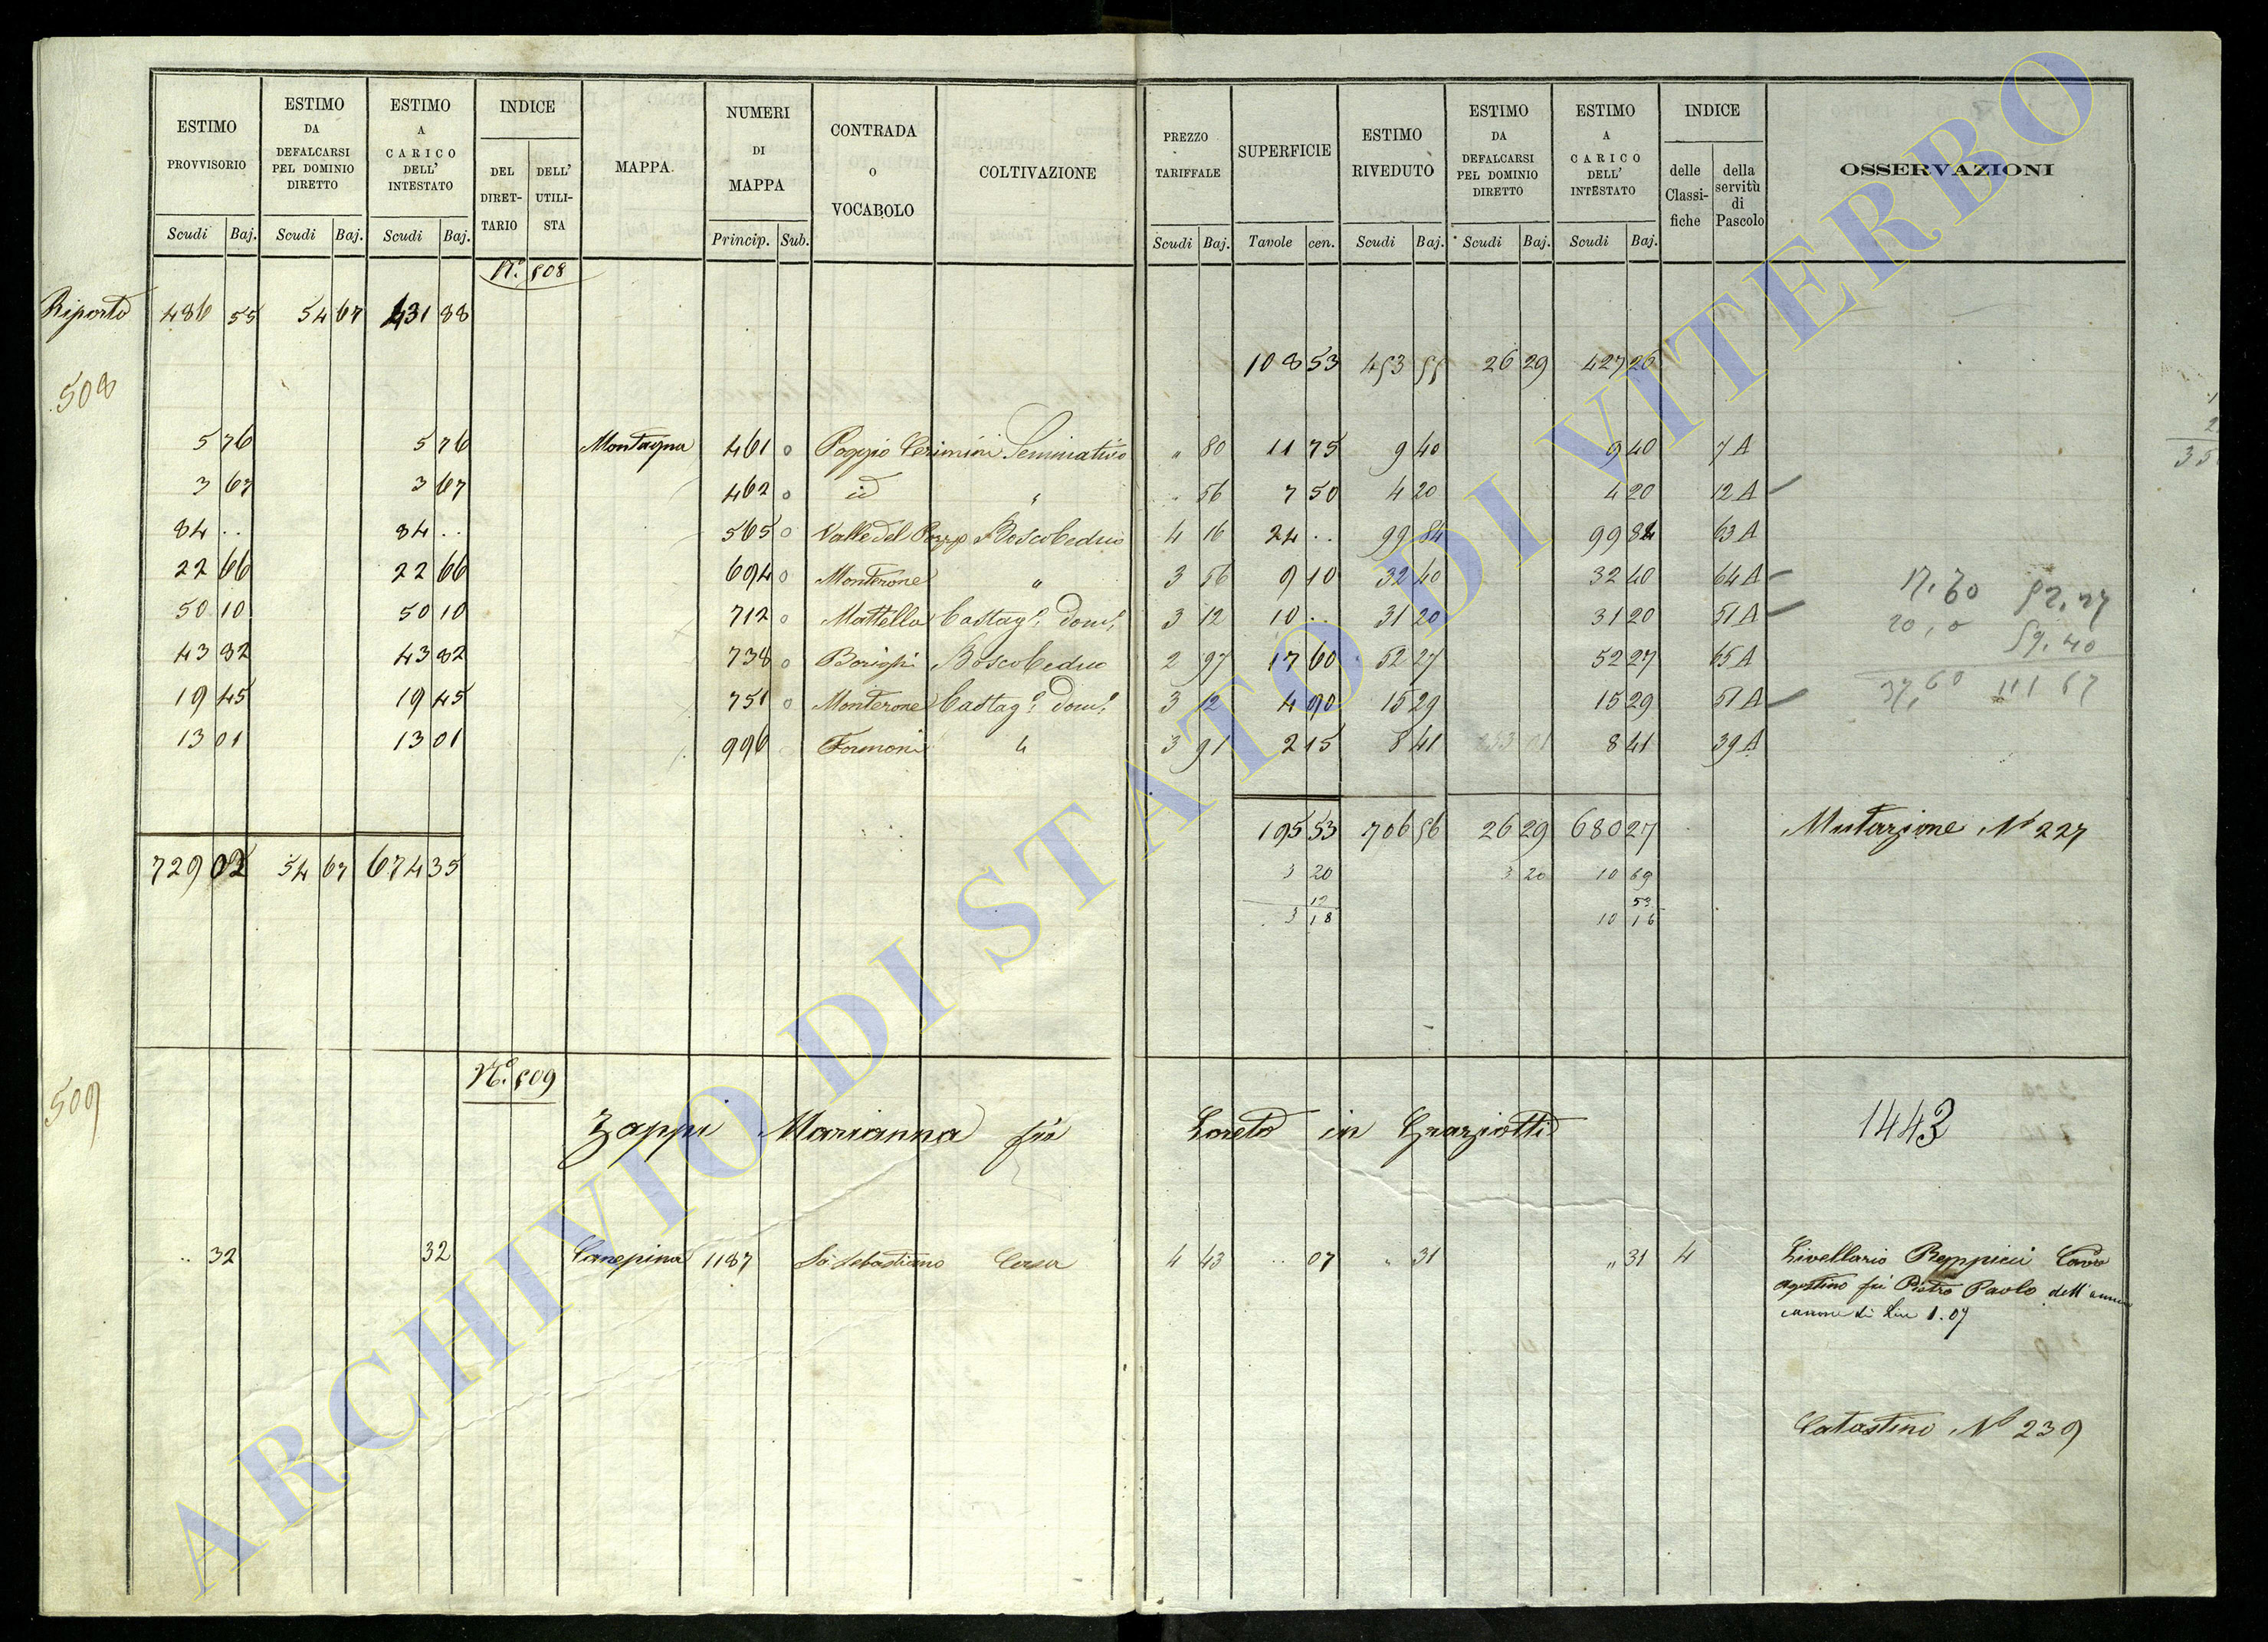 ESTIMO PROVVISORIO
ESTIMO DA DEFALCARSI PEL DOMINIO DIRETTO
ESTIMO A CARICO DELL' INTESTATO
INDICE
DEL DIRET-TARIO
DELL' UTILI-STA
MAPPA.
NUMERI DI MAPPA
CONTRADA o VOCABOLO
COLTIVAZIONE
PREZZO TARIFFALE
SUPERFICIE
ESTIMO RIVEDUTO
ESTIMO DA DEFALCARSI PEL DOMINIO DIRETTO
ESTIMO A CARICO DELL' INTESTATO
INDICE
delle Classi-fiche
della servitù di Pascolo
OSSERVAZIONI
Scudi Baj. Scudi Baj. Scudi Baj. Princip. Sub. Scudi Baj. Tavole cen. Scudi Baj. Scudi Baj. Scudi Baj.
N.º 508
Riporto 486 55 54 67 431 88
108 53 453 55 26 29 427 26
508
5 76 5 76 Montagna 461 0 Poggio Cerimini Seminativo " 80 11 75 9 40 9 40 7 A
3 67 3 67 462 0 id " " 56 7 50 4 20 4 20 12 A
84 .. 84 .. 565 0 Valle del Pozzo Bosco Ceduo 4 16 24 .. 99 84 99 84 63 A
22 66 22 66 694 0 Monterone " 3 56 9 10 32 40 32 40 64 A
50 10 50 10 712 0 Mattella Castag. dom. 3 12 10 .. 31 20 31 20 51 A
43 82 43 82 738 0 Bosco Ceduo 2 97 17 60 52 27 52 27 65 A
19 45 19 45 751 0 Monterone Castag. dom. 3 12 4 90 15 29 15 29 51 A
13 01 13 01 996 Formoni " 3 91 2 15 8 41 8 41 39 A
17,60 52,27
20,0 59,40
37,60 111 67
195 53 706 56 26 29 680 27 Mutazione Nº 227
729 03 54 67 674 35
3 20 3 20 10 69
12 53
3 18 10 16
N.º 509
509
Zappi Marianna fu Loreto in Graziotti 1443
.. 32 32 Canepina 1187 S. Sebastiano Casa 4 43 .. 07 " 31 " 31 4 Livellario Cav
Agostino fu Pietro Paolo dell' annuo
canone di Lire 1.07
Catastino Nº 239
ARCHIVIO DI STATO DI VITERBO